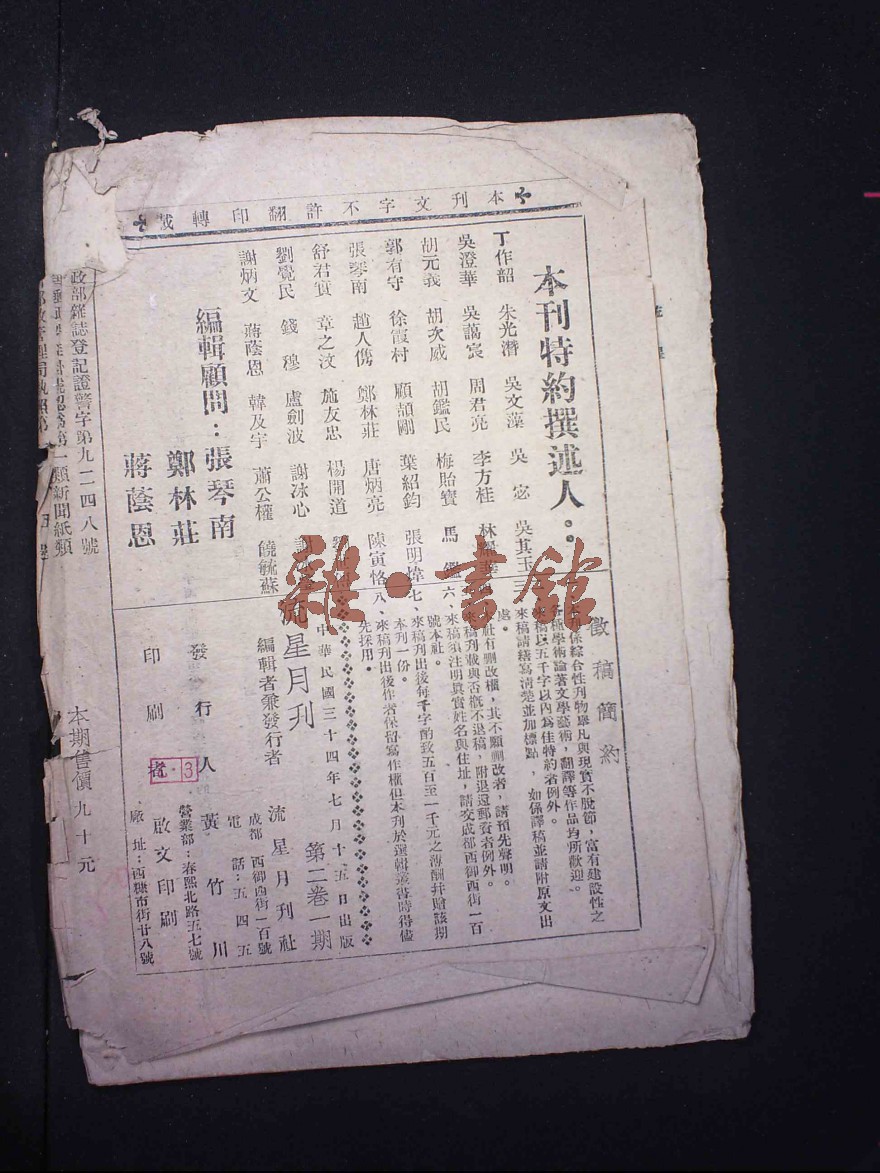 本刊文字不許翻印轉載
本刊特約撰述人：
丁作韶 朱光潛 吳文藻 吳宓 吳其玉
吳澄華 吳藹宸 周君亮 李方桂
胡元義 胡次威 胡鑑民 梅貽寶 馬鑑
郭有守 徐霞村 顧頡剛 葉紹鈞 張明煒
張琴南 趙人儁 鄭林莊 唐炳亮 陳寅恪
舒君實 章之汶 施友忠 楊開道
劉覺民 錢穆 盧劍波 謝冰心
謝炳文 蔣蔭恩 韓及宇 蕭公權 饒毓蘇
編輯顧問：張琴南
鄭林莊
蔣蔭恩
徵稿簡約
係綜合性刊物舉凡與現實不脫節，富有建設性之
各種學術論著文學藝術，翻譯等作品均所歡迎。
來稿以五千字以內為佳特約者例外。
來稿請繕寫清楚並加標點，如係譯稿並請附原文出
處。
社有刪改權，其不願刪改者，請預先聲明。
來稿刊載與否概不退稿，附退還郵資者例外。
六、來稿須注明真實姓名與住址，請交成都西御西街一百
號本社。
七、來稿刊出後每千字酌致五百至一千元之薄酬并贈該期
本刊一份。
八、來稿刊出後作者保留寫作權但本刊於選輯叢書時得儘
先採用。
中華民國三十四年七月十五日出版
流星月刊 第二卷一期
編輯者兼發行者 流星月刊社
成都 西御西街一百號
電話：五四五
發行人 黃竹川
營業部：春熙北路五七號
印刷者 啟文印刷
廠址：西糠市街廿八號
政部雜誌登記證警字第九二四八號
第一類新聞紙類
本期售價九十元
3
雜·書館